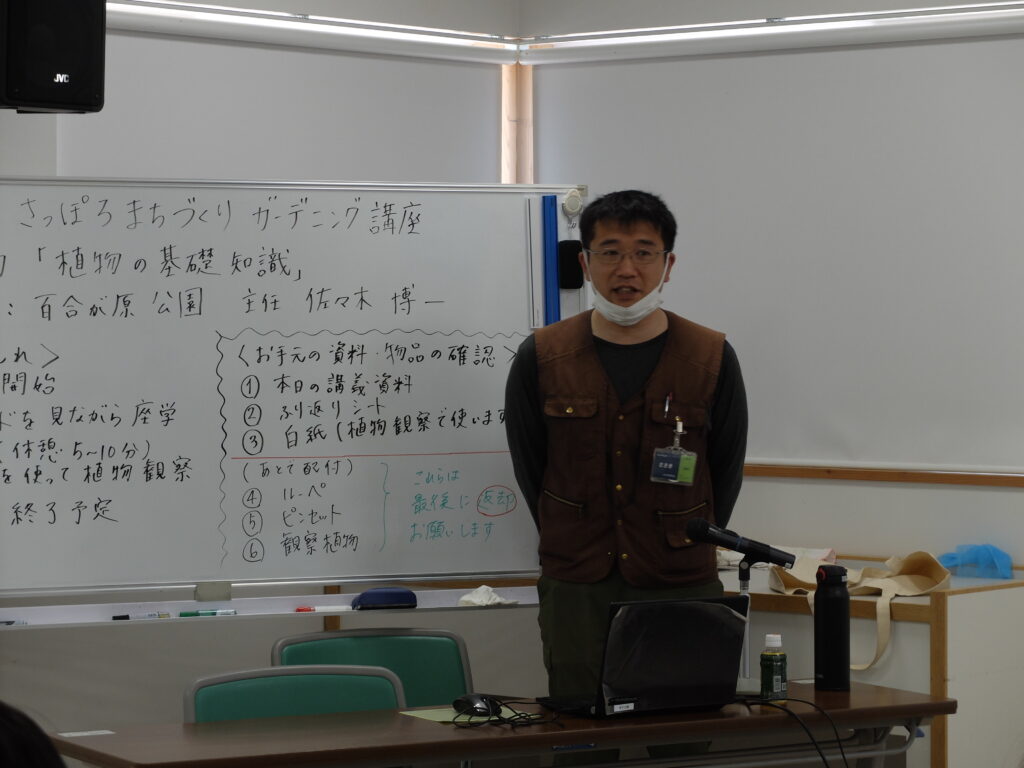 JVC
さっぽろまちづくり ガーデニング講座
「植物の基礎知識」
: 百合が原公園 主任 佐々木 博一
れ>
開始
ドを見ながら座学
(休憩 5~10分)
を使って植物観察
終了予定
<お手元の資料・物品の確認>
① 本日の講義資料
② ふり返りシート
③ 白紙 (植物観察で使います
(あとで配付)
④ ルーペ
⑤ ピンセット
⑥ 観察植物
これらは
最後に返却
お願いします